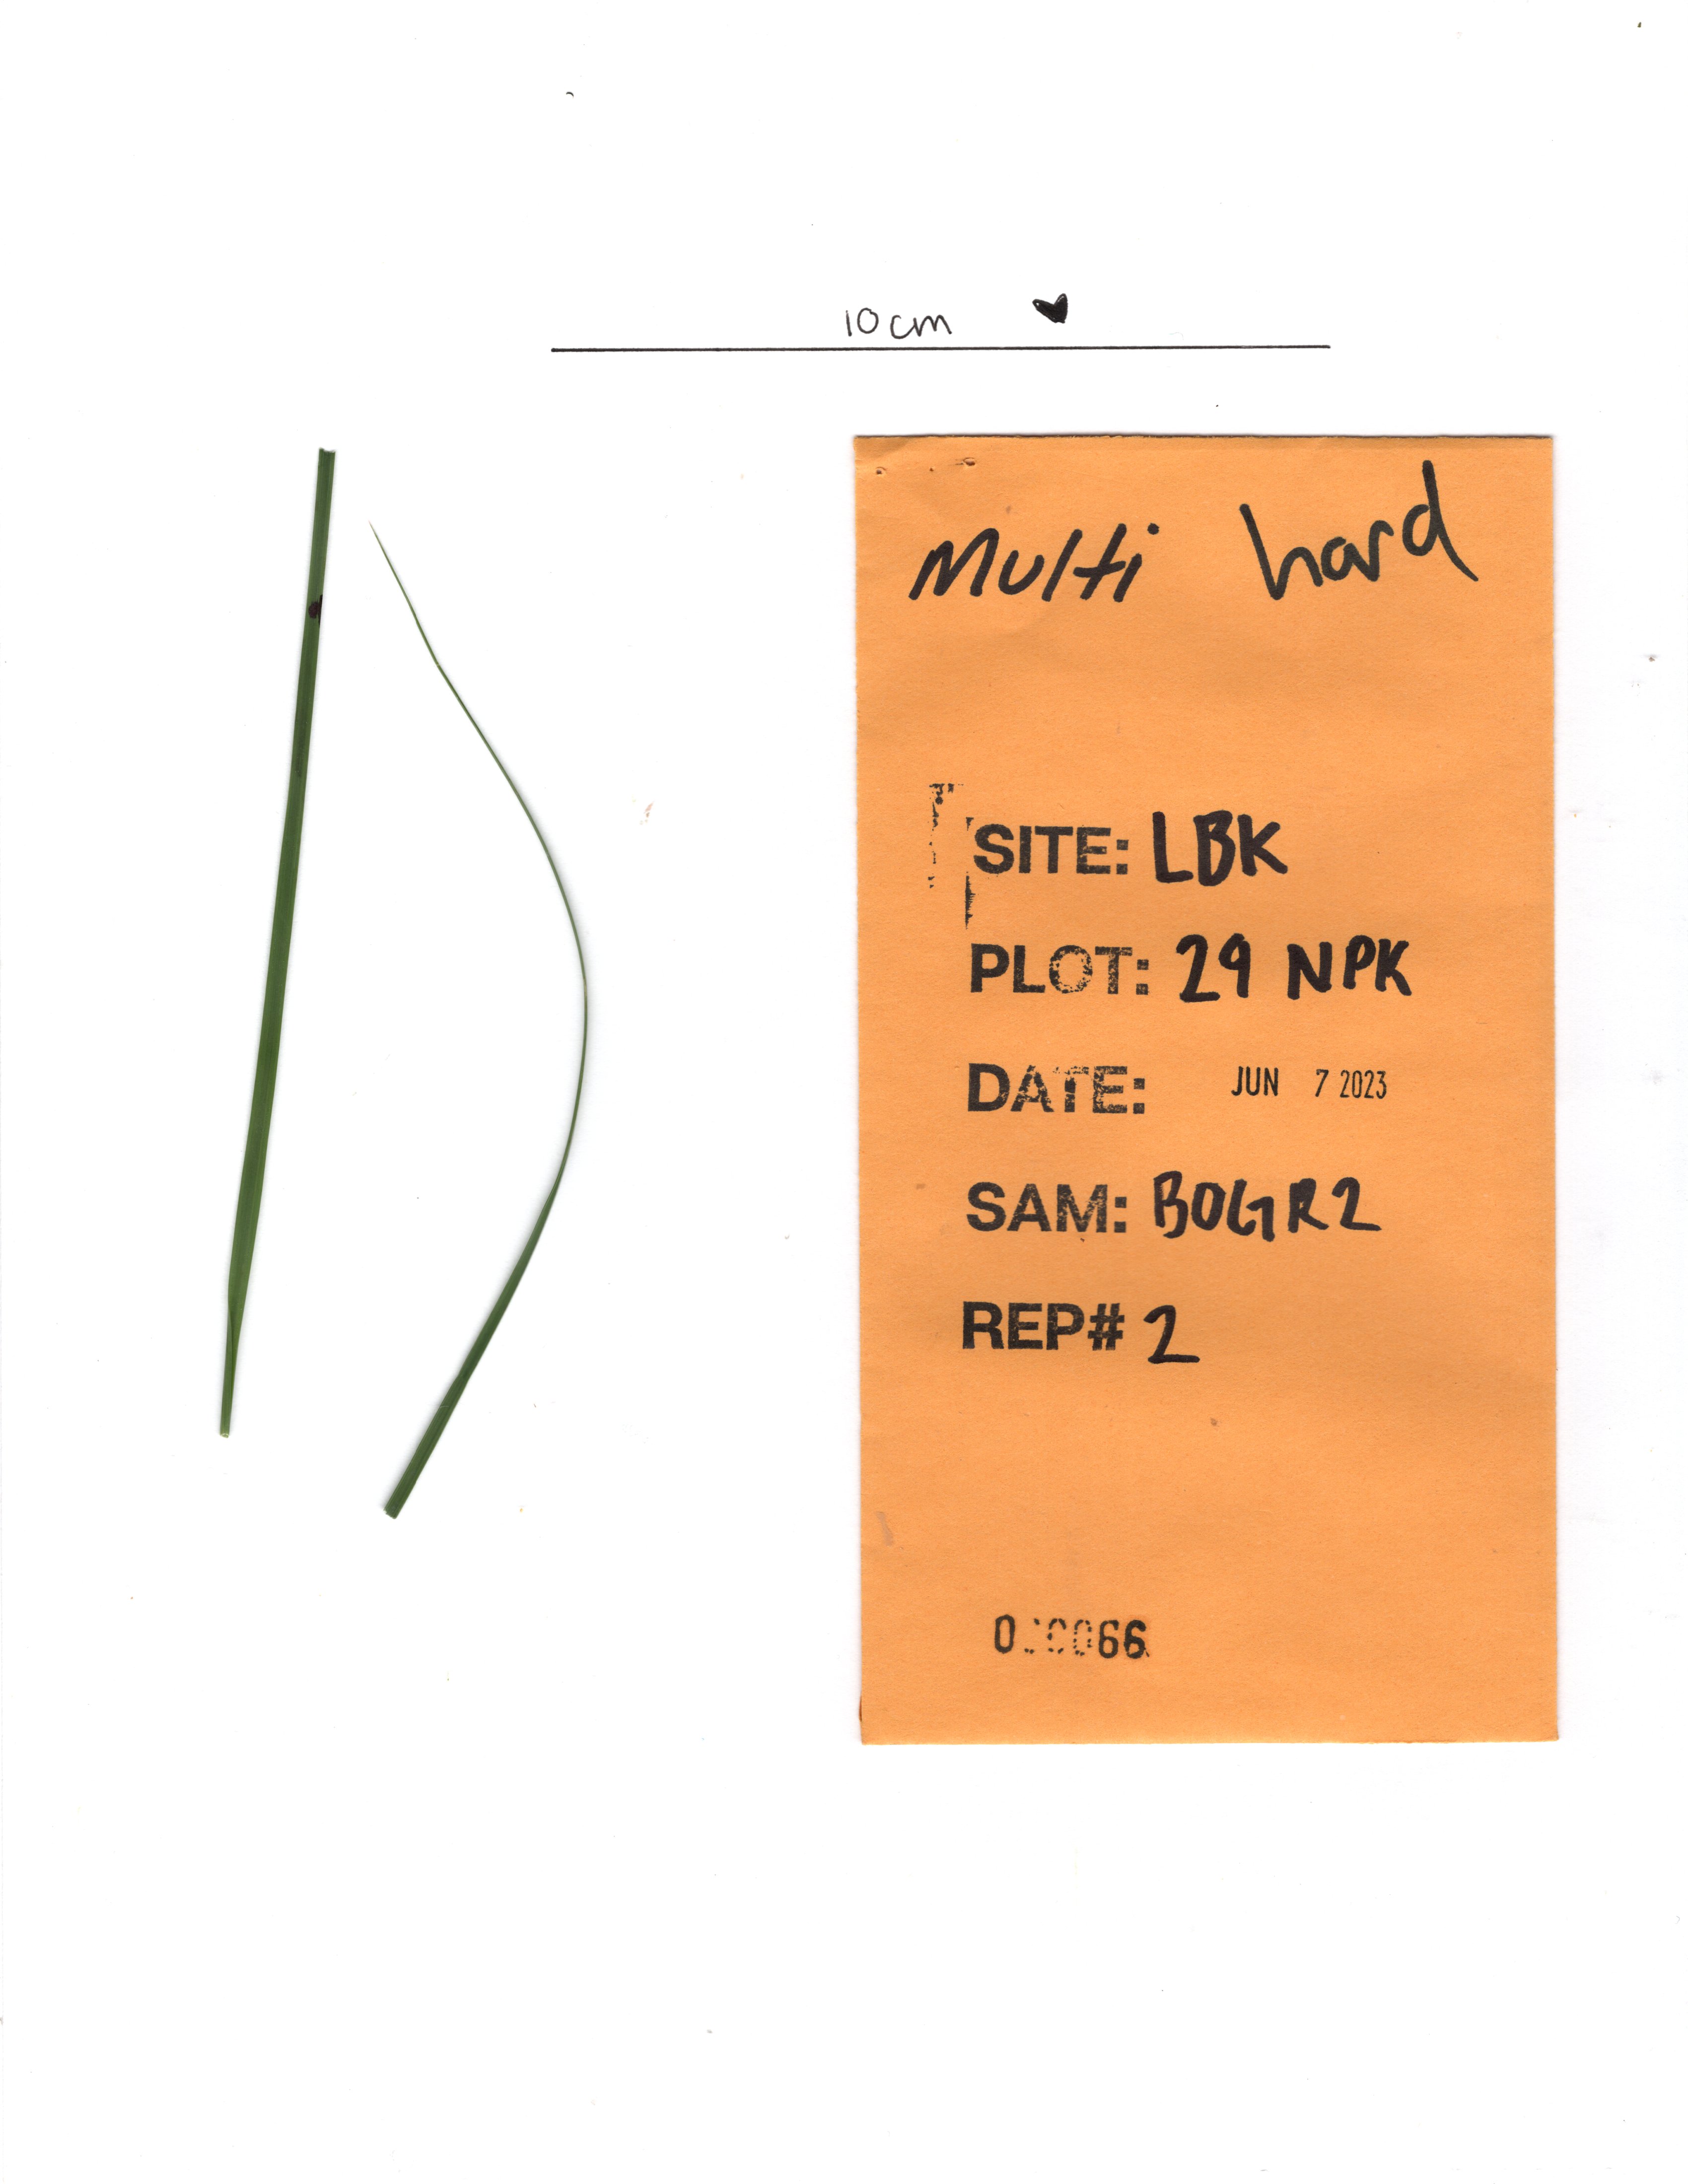 10cm
Multi hard
SITE: LBK
PLOT: 29 NPK
DATE: JUN 7 2023
SAM: BOGR2
REP# 2
000066